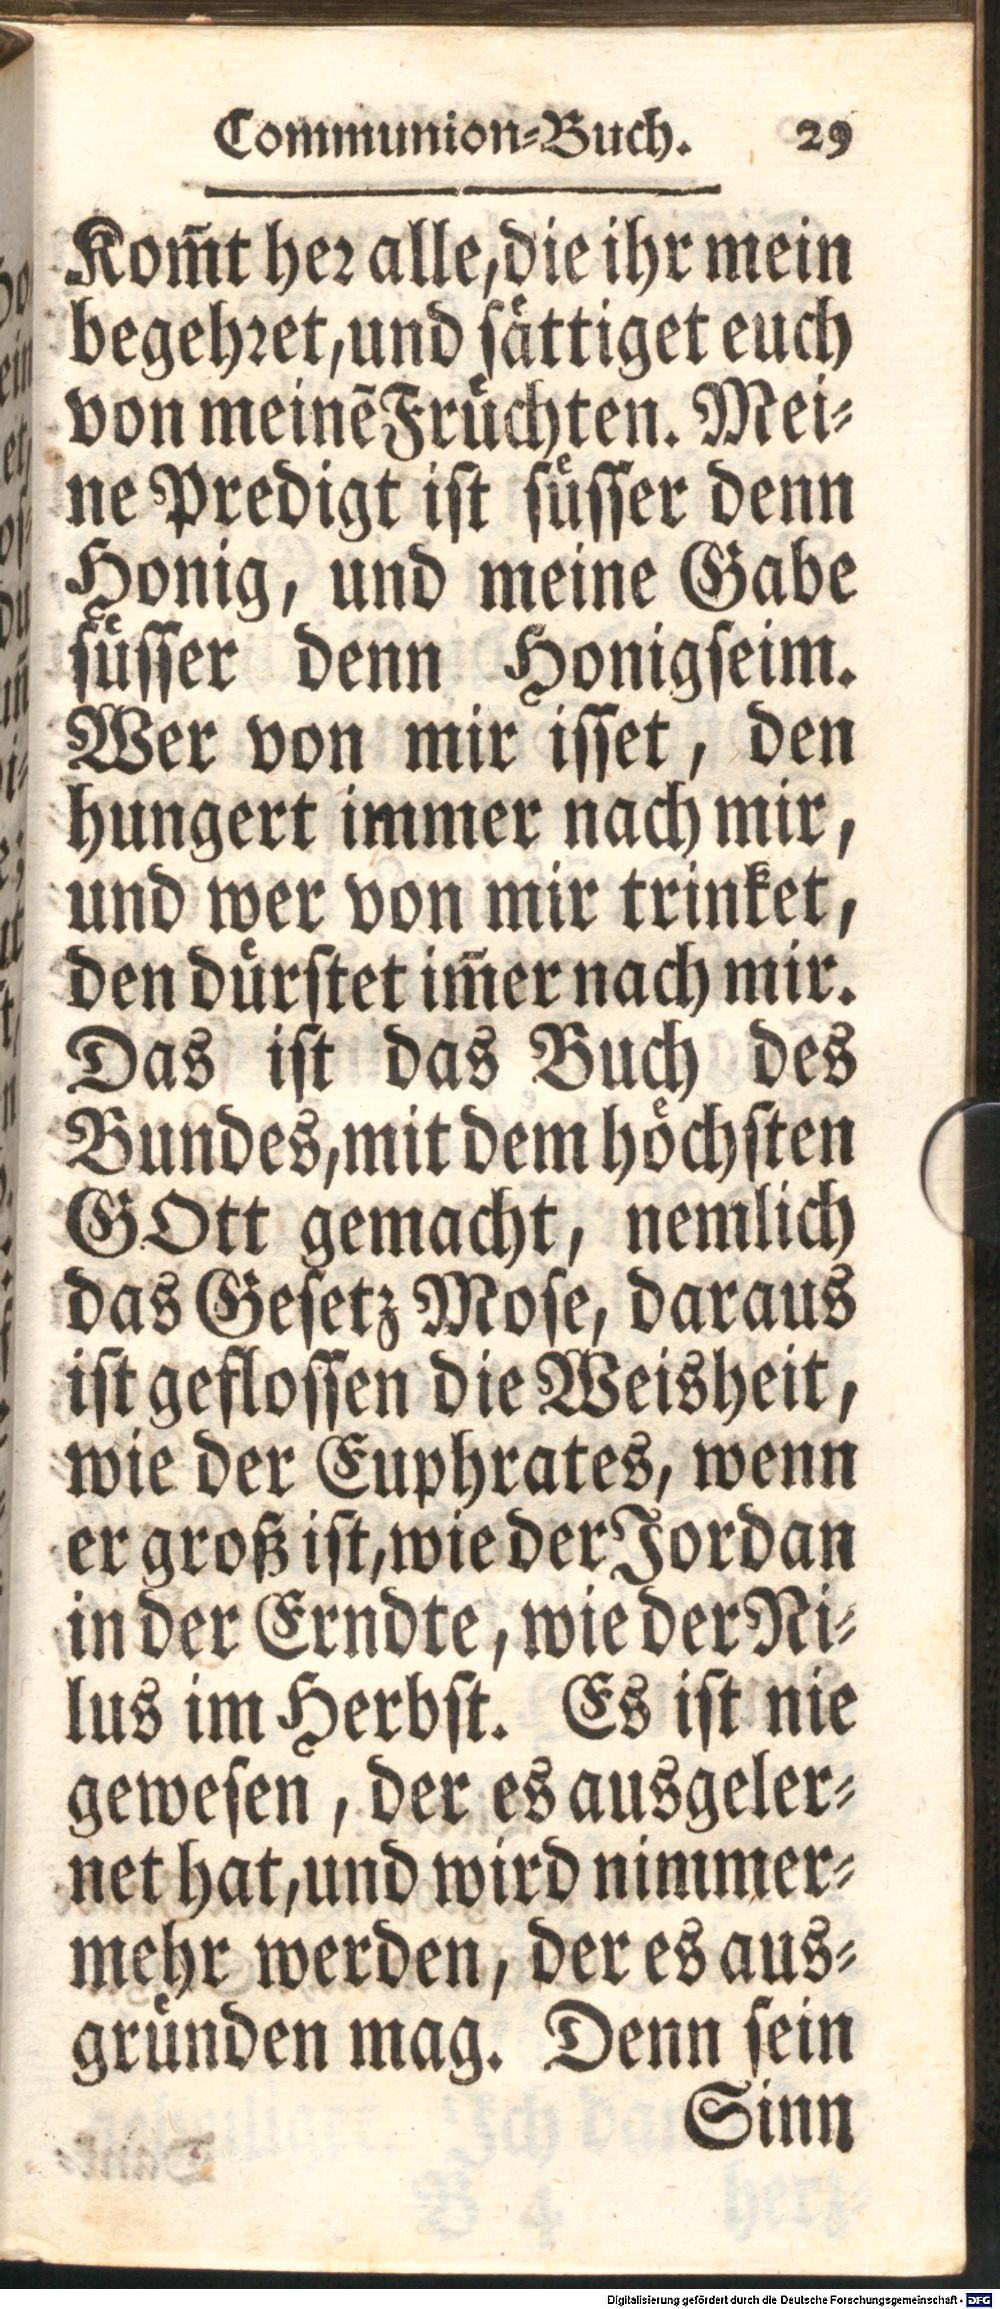 Communion-Buch. 29
Kom̃t her alle, die ihr mein
begehret, und ſaͤttiget euch
von meinẽ Fruͤchten. Mei-
ne Predigt iſt ſuͤſſer denn
Honig, und meine Gabe
ſuͤſſer denn Honigſeim.
Wer von mir iſſet, den
hungert immer nach mir,
und wer von mir trinket,
den duͤrſtet im̃er nach mir.
Das iſt das Buch des
Bundes, mit dem hoͤchſten
GOtt gemacht, nemlich
das Geſetz Moſe, daraus
iſt gefloſſen die Weisheit,
wie der Euphrates, wenn
er groß iſt, wie der Jordan
in der Erndte, wie der Ni-
lus im Herbſt. Es iſt nie
geweſen, der es ausgeler-
net hat, und wird nimmer-
mehr werden, der es aus-
gruͤnden mag. Denn ſein
Sinn
Digitalisierung gefördert durch die Deutsche Forschungsgemeinschaft - DFG